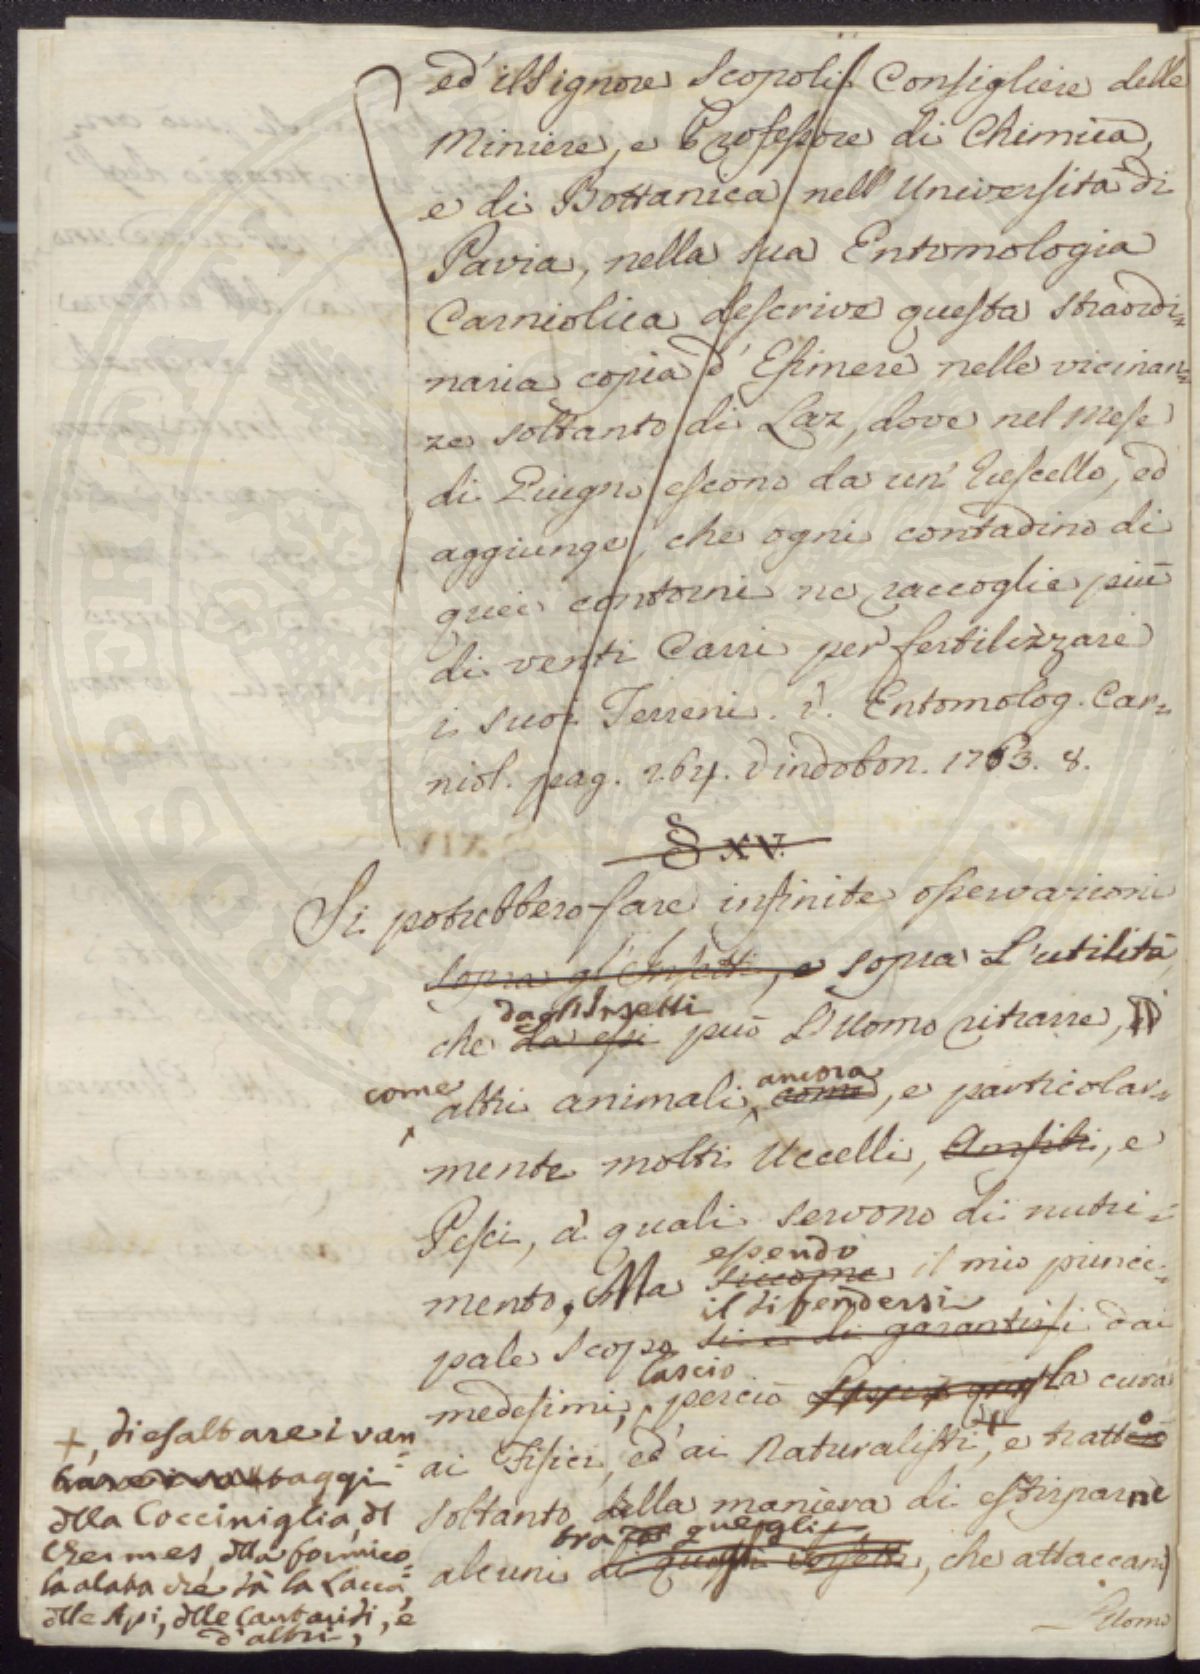 ed' il Signore Scopoli Consigliere delle
Miniere, e Professore di Chimica,
e di Bottanica nell' Università di
Pavia, nella sua Entomologia
Carniolica descrive questa straordi=
naria copia d' Efimere nelle vicinan=
ze soltanto di Laz, dove nel Mese
di Giugno escono da un' ruscello, ed
aggiunge, che ogni contadino di
quei contorni ne raccoglie più
di venti Carri per fertilizzare
i suoi Terreni. v. Entomolog. Car=
niol. pag. 264. Vindobon. 1763. 8.
§ XV.
Si potrebbero fare infinite osservazioni
sopra gl' Insetti, e sopra L'utilità
dagl'Insetti
che da essi può L'Uomo ritrarre,
come ancora
altri animali, come, e particolar=
mente molti Uccelli, Amfibi, e
Pesci, à quali servono di nutri=
essendo
mento, Ma siccome il mio princi=
il difendersi
pale scopo si è di garantirsi dai
lascio
medesimi, perciò la cura
ai Fisici, ed' ai Naturalisti, + e tratto
soltanto della maniera di estirparne
tra quegli
alcuni di questi Insetti, che attaccano
L'Uomo
+, di esaltare i van
taggi
della Cocciniglia, del
Chermes, della formico=
la alata che dà la Lacca,
delle Api, delle Cantaridi, e
d'altri,